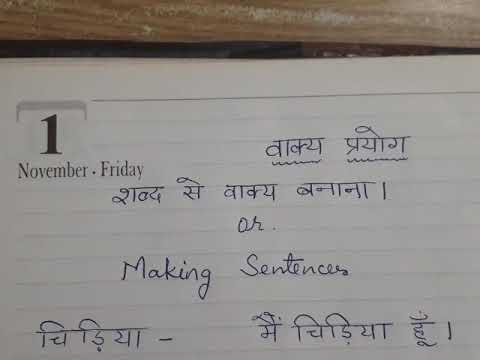 1
November . Friday
वाक्य प्रयोग
शब्द से वाक्य बनाना।
or.
Making Sentences
चिड़िया - मैं चिड़िया हूँ।